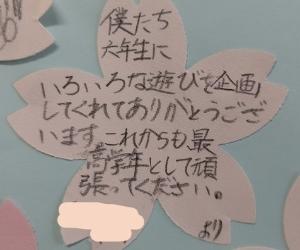 僕たち
六年生に
いろいろな遊びを企画
してくれてありがとうござ
います。これからも最
高学年として頑
張ってください。
より